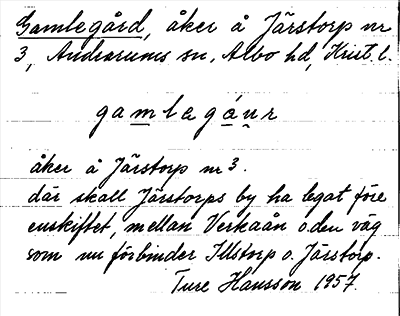 Gamlegård, åker å Järstorp nr
3, Andrarums sn, Albo hd, Krist. l.
gamlegáu̯r
åker å Järstorp nr 3.
där skall Järstorps by ha legat före
enskiftet, mellan Verkaån o. den väg
som nu förbinder Illstorp o. Järstorp.
Ture Hansson 1957.